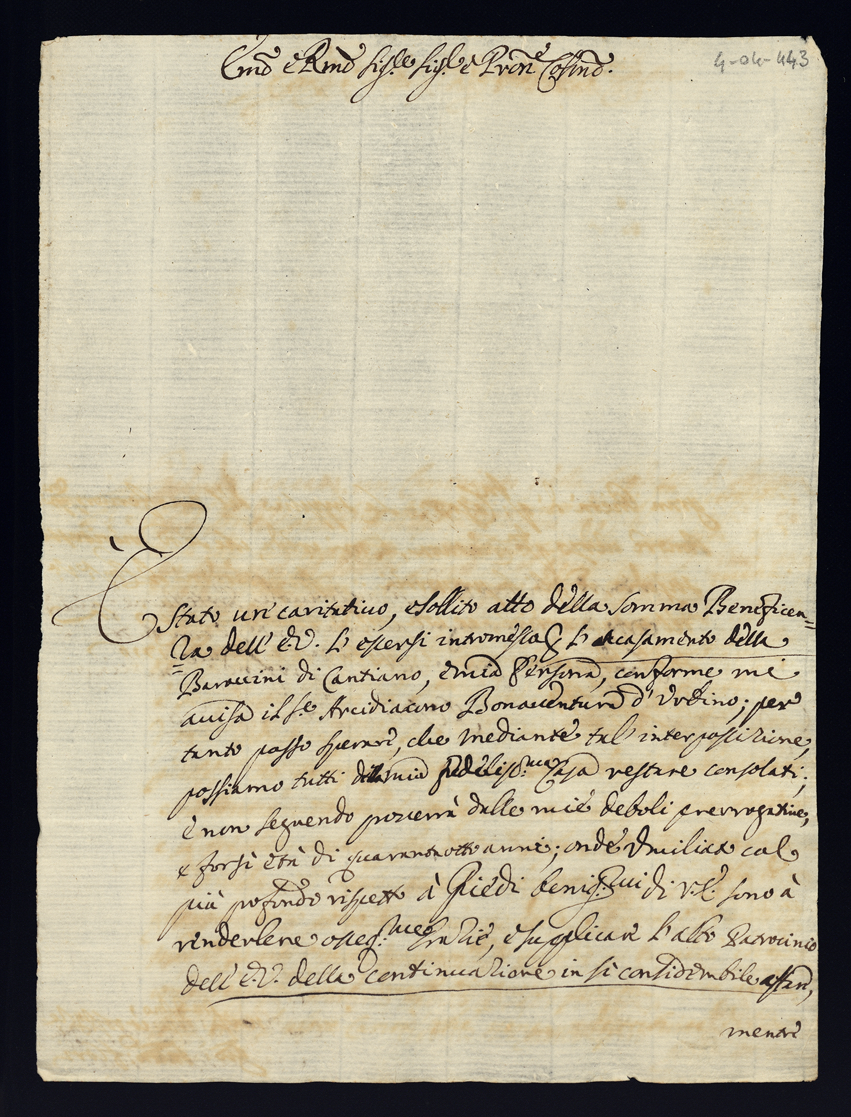 Emo e Rmo Sig.re Sig.re e Pron Colmo.
4-04-443
È Stato un caritativo, e solito atto della somma Beneficen=
=za dell'E.V. l'essersi intromessa p l'accasamento della
Baroccini di Cantiano, e mia Persona, conforme mi
avisa il Sr. Arcidiacono Bonaventura d'Urbino; per
tanto posso sperare, che mediante tal' interposizione,
possiamo tutti della mia fedelis.ma Casa restare consolati;
e non seguendo porverrà dalle mie deboli prerogative,
e forsi età di quarantotto anni; onde umiliato col
più profondo rispetto à Piedi benig.mi di V.E. sono à
renderlene osseq.me grazie, e suplicare l'alto Patrocinio
dell'E.V. della continuazione in si considerabile affare,
mentre